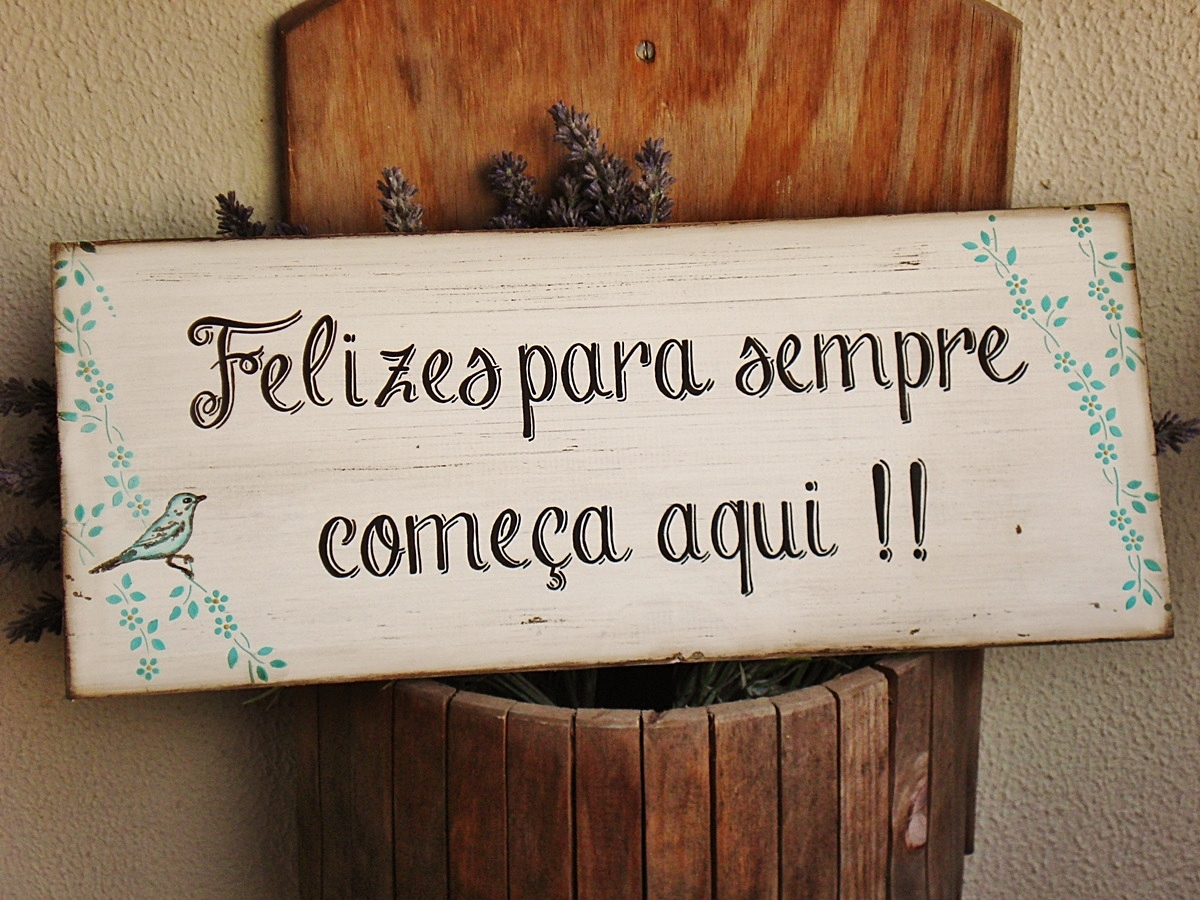 Felizes para sempre
começa aqui !!